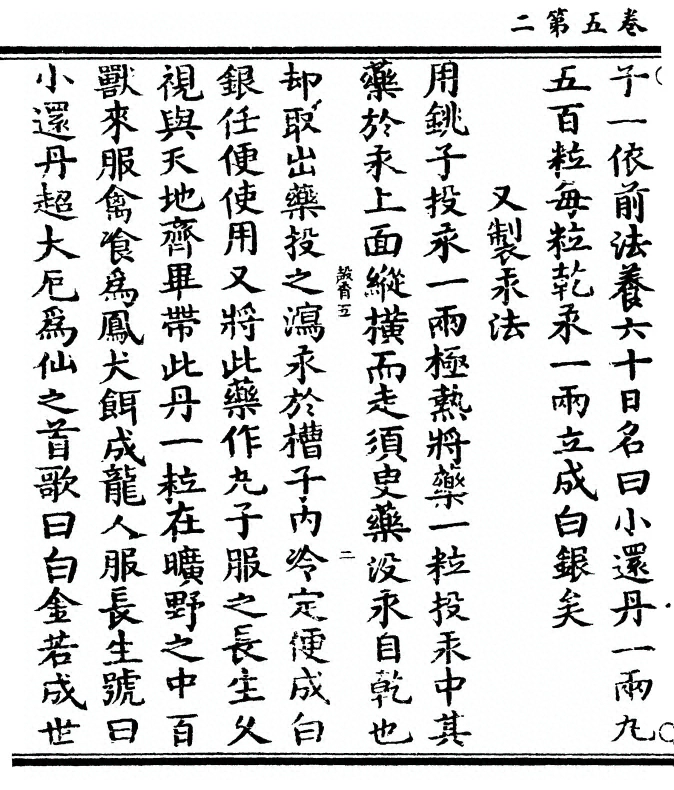 卷五第二
子一依前法養六十日名曰小還丹一兩丸
五百粒每粒乾汞一兩立成白銀矣
又製汞法
用銚子投汞一兩極熱將藥一粒投汞中其
藥於汞上面縱橫而走須臾藥沒汞自乾也
二
却取出藥投之瀉汞於槽子內冷定便成白
銀任便使用又將此藥作丸子服之長生久
視與天地齊畢帶此丹一粒在曠野之中百
獸來服禽飡爲鳳犬餌成龍人服長生號曰
小還丹超大厄爲仙之首歌曰白金若成世